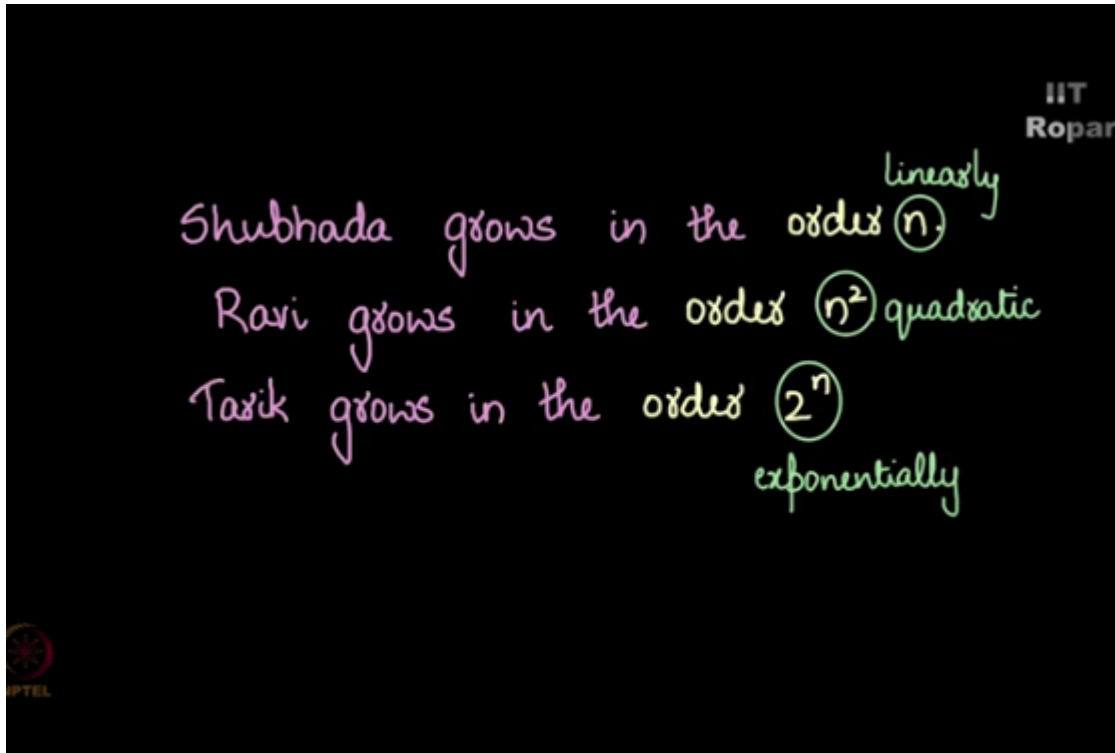 IIT
Ropar
linearly
Shubhada grows in the order n.
Ravi grows in the order n² quadratic
Tarik grows in the order 2ⁿ
exponentially
NPTEL